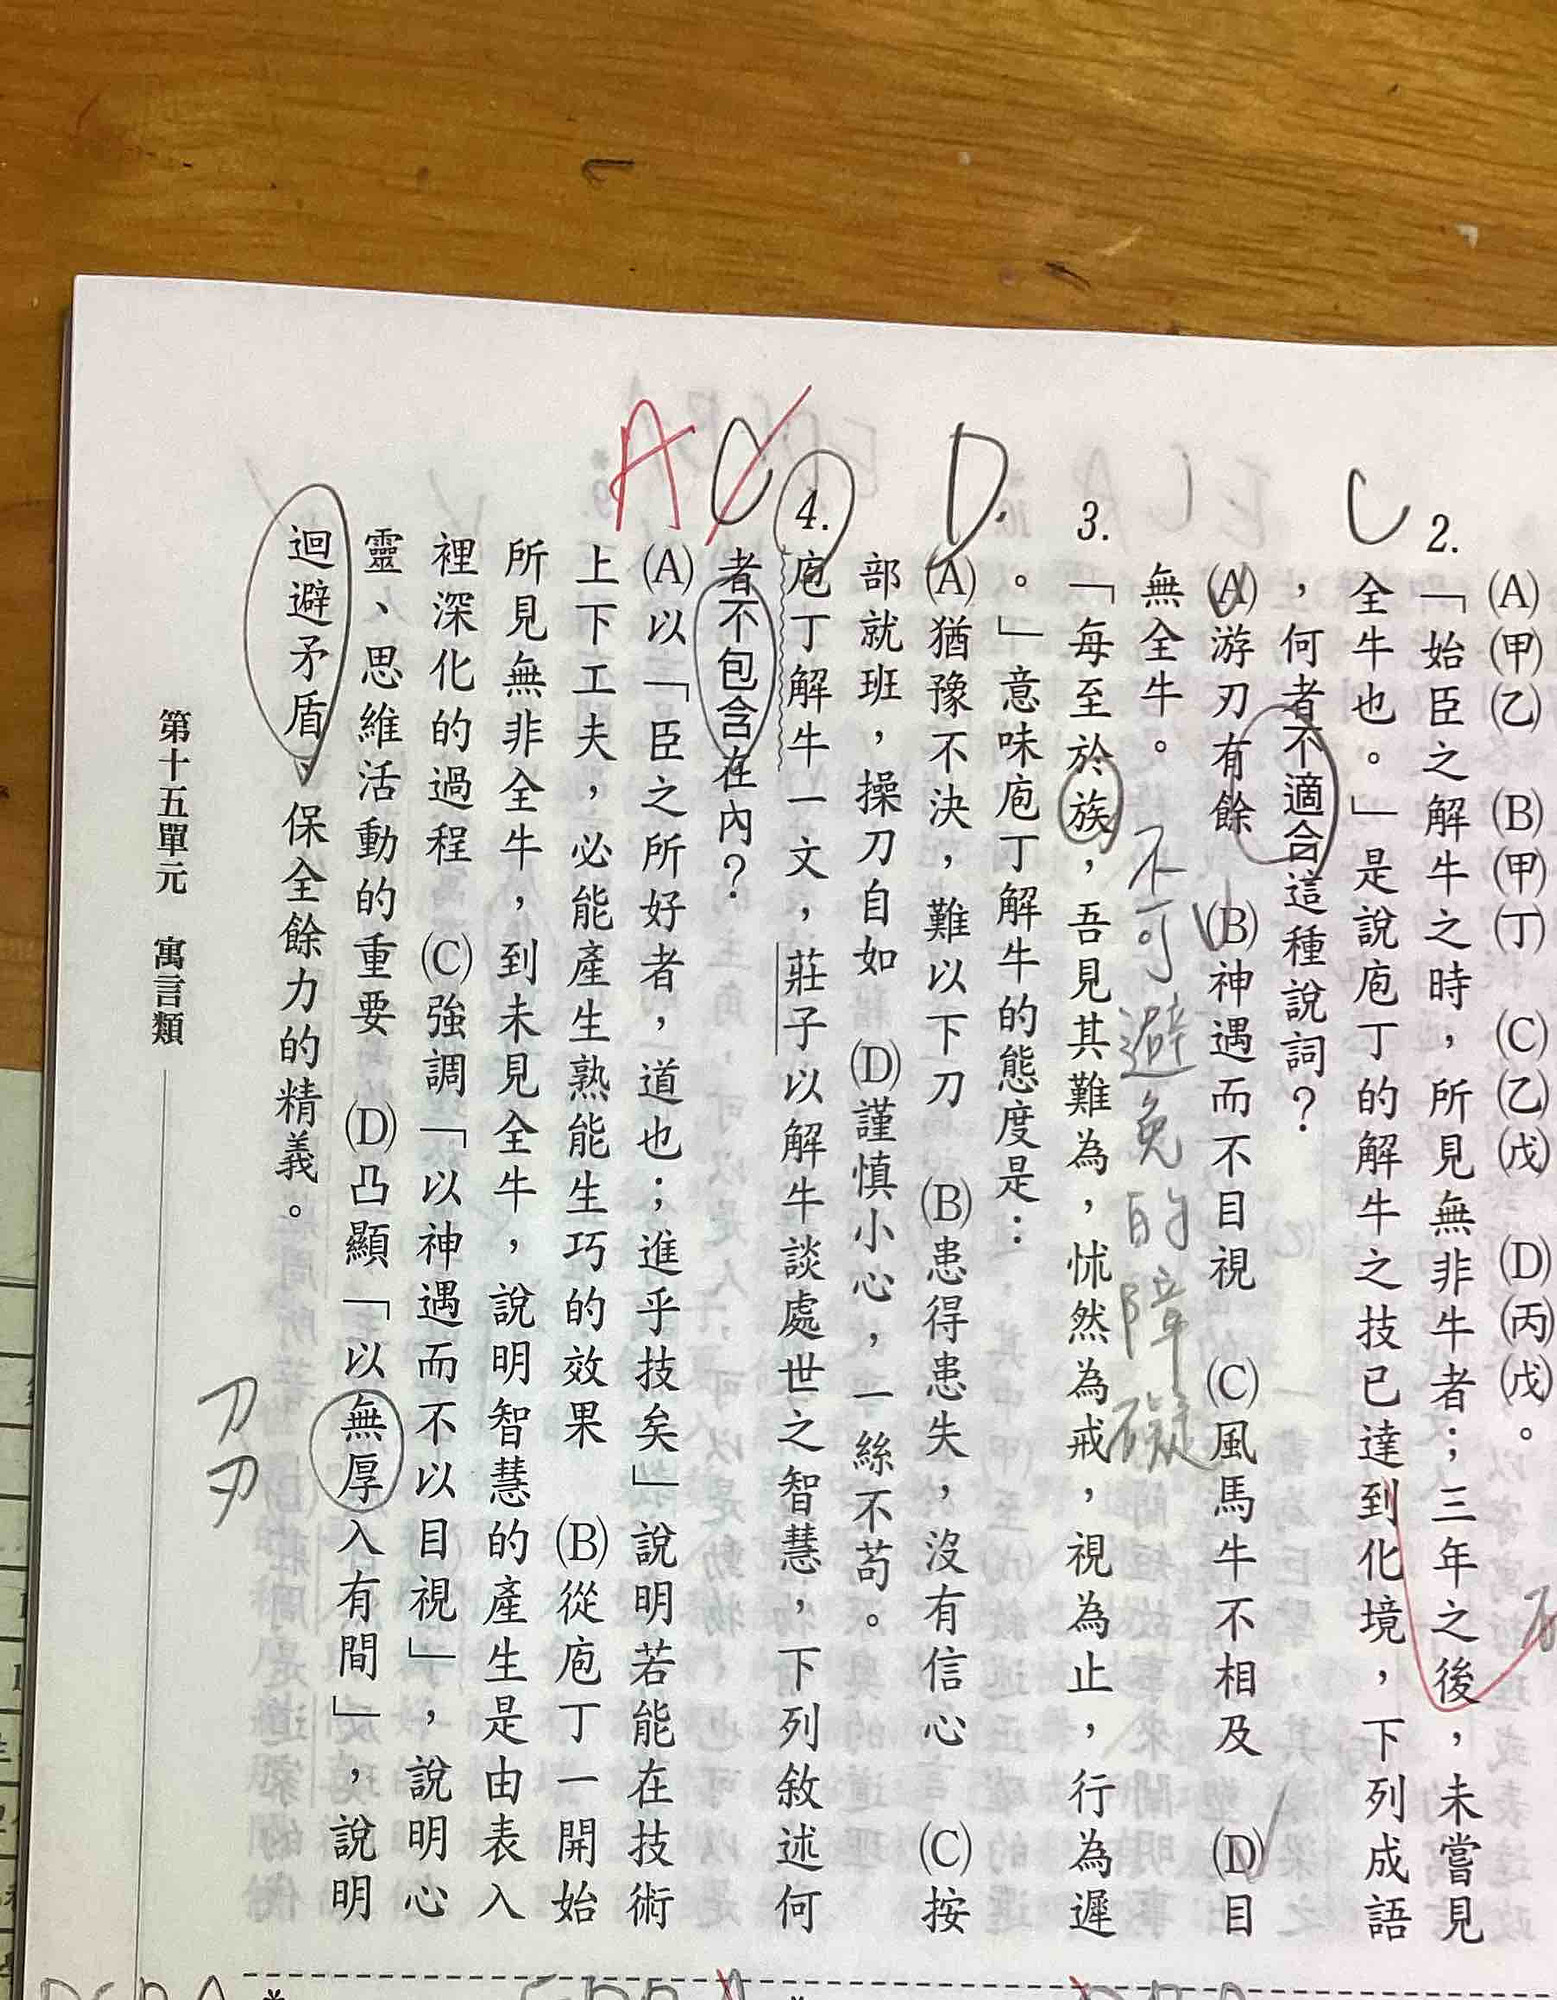 (A)(甲)(乙)　(B)(甲)(丁)　(C)(乙)(戊)　(D)(丙)(戊)。
C 2.「始臣之解牛之時，所見無非牛者；三年之後，未嘗見
全牛也。」是說庖丁的解牛之技已達到化境，下列成語
，何者不適合這種說詞？
(A)游刃有餘　(B)神遇而不目視　(C)風馬牛不相及　(D)目
無全牛。
不可避免的障礙
D. 3.「每至於族，吾見其難為，怵然為戒，視為止，行為遲
。」意味庖丁解牛的態度是：
(A)猶豫不決，難以下刀　(B)患得患失，沒有信心　(C)按
部就班，操刀自如　(D)謹慎小心，一絲不苟。
A C 4.庖丁解牛一文，莊子以解牛談處世之智慧，下列敘述何
者不包含在內？
(A)以「臣之所好者，道也；進乎技矣」說明若能在技術
上下工夫，必能產生熟能生巧的效果　(B)從庖丁一開始
所見無非全牛，到未見全牛，說明智慧的產生是由表入
裡深化的過程　(C)強調「以神遇而不以目視」，說明心
靈、思維活動的重要　(D)凸顯「以無厚入有間」，說明
迴避矛盾、保全餘力的精義。
刀
刃
第十五單元　寓言類